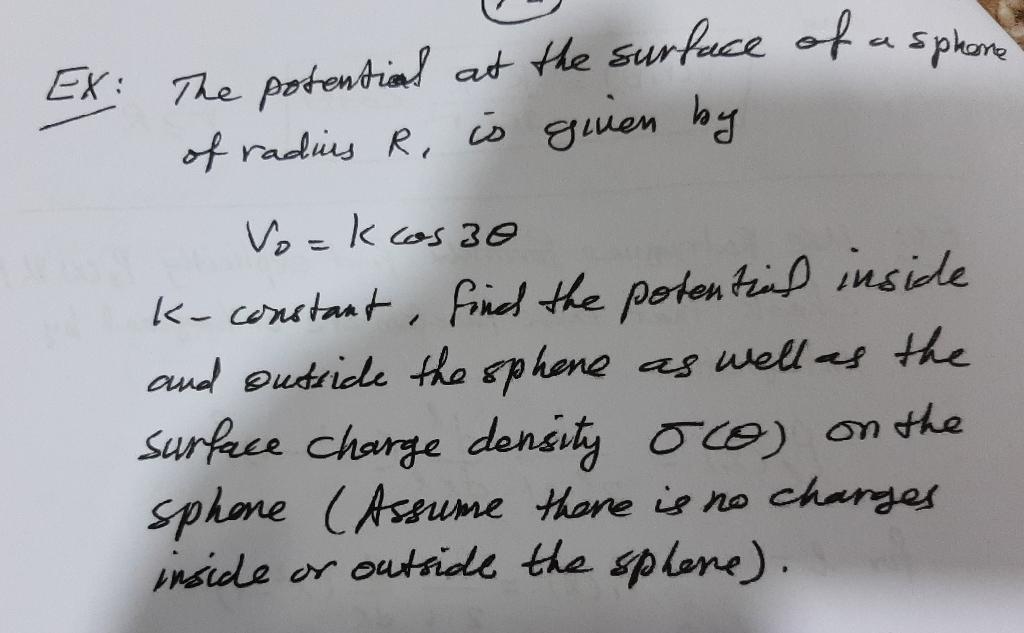 EX: The potential at the surface of a sphere
of radius R, is given by
V₀ = k cos 3θ
k - constant, find the potential inside
and outside the sphere as well as the
surface charge density σ(θ) on the
sphere (Assume there is no charges
inside or outside the sphere).